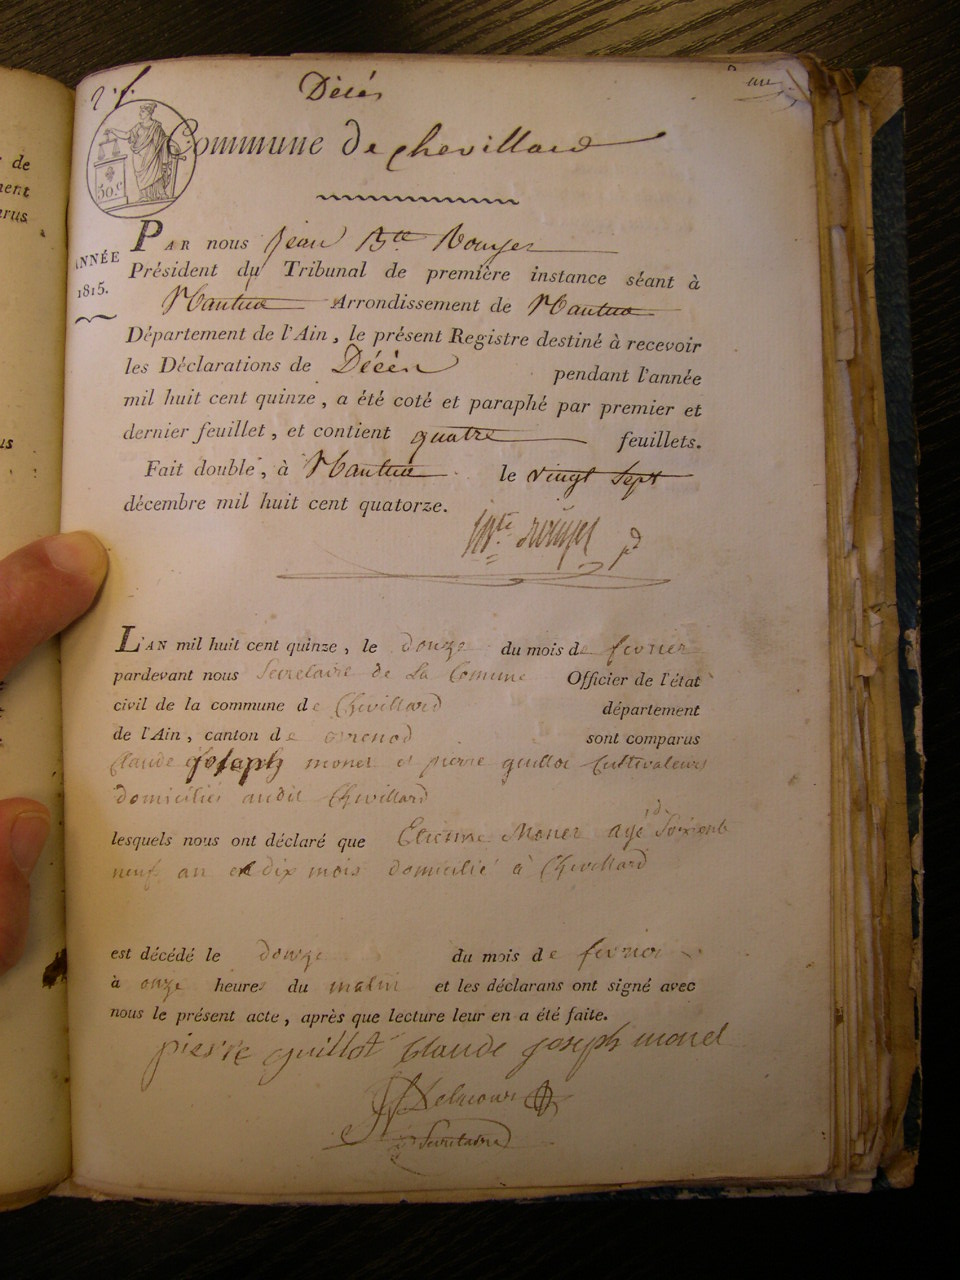 Décés
un
Commune de Chevillard
50.c
ANNÉE
1815.
PAR nous Jean Bte Rouyer
Président du Tribunal de première instance séant à
Nantua Arrondissement de Nantua
Département de l'Ain, le présent Registre destiné à recevoir
les Déclarations de Décès pendant l'année
mil huit cent quinze, a été coté et paraphé par premier et
dernier feuillet, et contient quatre feuillets.
Fait double, à Nantua le vingt Sept
décembre mil huit cent quatorze.
Bte Rouyer
L'AN mil huit cent quinze, le douze du mois de fevrier
pardevant nous Secretaire de La Comune Officier de l'état
civil de la commune de Chevillard département
de l'Ain, canton de Brenod sont comparus
Claude joseph monet et pierre guillot Cultivateurs
domiciliés audit Chevillard
lesquels nous ont déclaré que Etienne Monet agé de Soixante
neuf an et dix mois domicilié à Chevillard
est décédé le douze du mois de fevrier
à onze heures du matin et les déclarans ont signé avec
nous le présent acte, après que lecture leur en a été faite.
pierre guillot Claude joseph monet
Secretaire
de
ment
rus
us